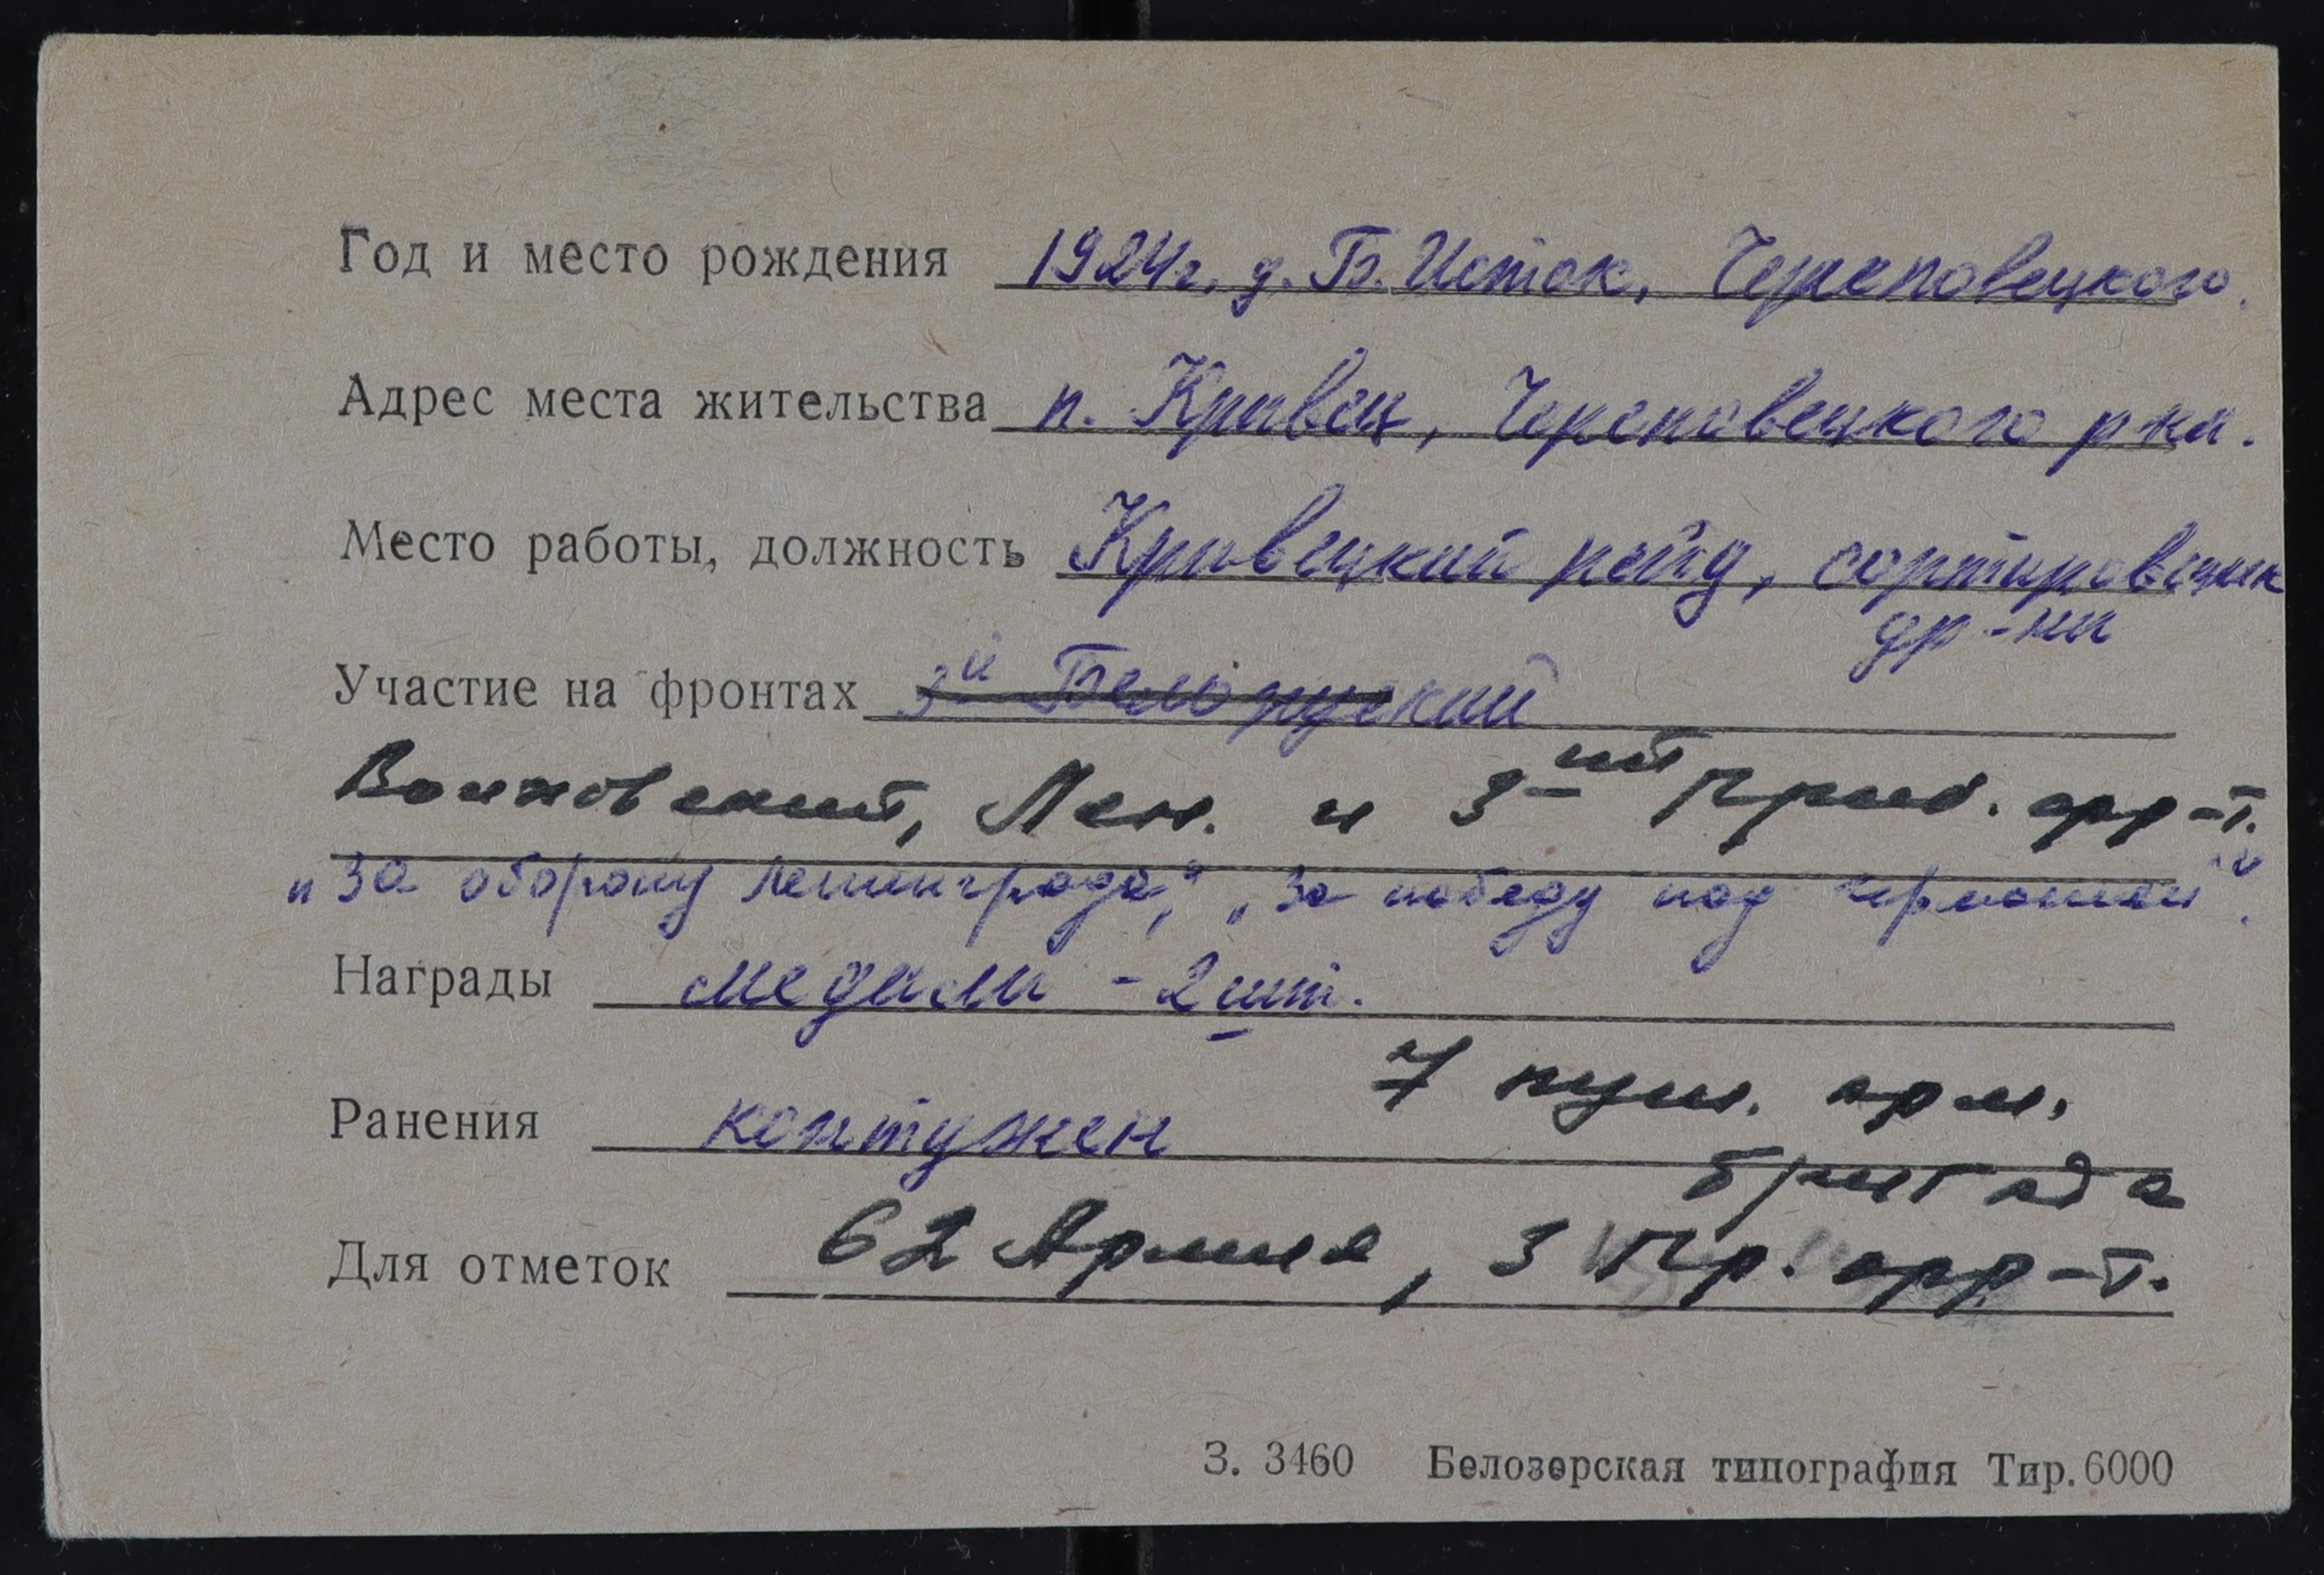 Год и место рождения 1924г. д. Б. Исток, Череповецкого.
Адрес места жительства п. Кривец, Череповецкого р-на.
Место работы, должность Кривецкий рейд, сортировщик
др-ны
Участие на фронтах 3й Белоруский
Волховский, Лен. и 3-ий Приб. фр-т.
"За оборону Ленинграда", "За победу над Германией".
Награды медали - 2 шт.
7 пуш. арм.
Ранения контужен
бригада
Для отметок 62 Армия, 3 Пр. фр-т.
З. 3460 Белозерская типография Тир. 6000